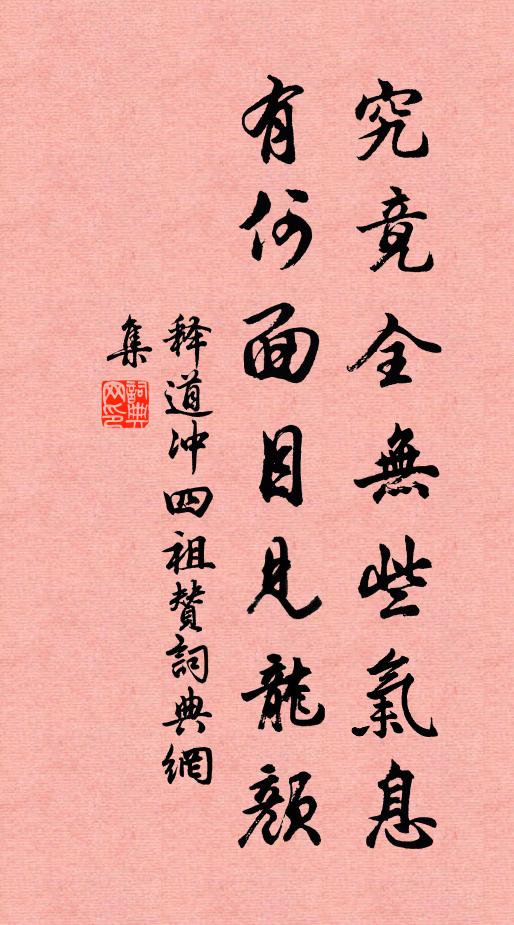 究竟全無些氣息
有何面目見龍顏
释道冲四祖赞詞典網
集
詞典网印